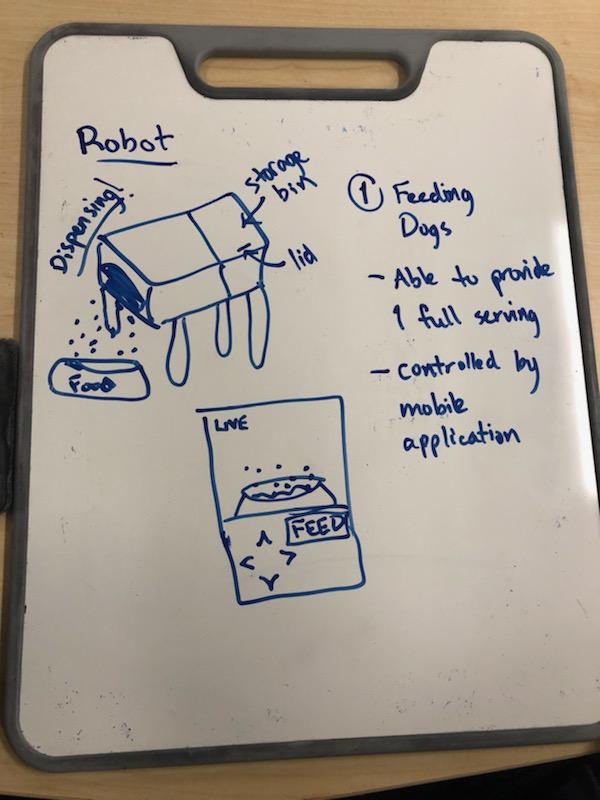 Robot
Dispensing!
storage
bin
lid
Food
① Feeding
Dogs
- Able to provide
1 full serving
- controlled by
mobile
application
LIVE
FEED